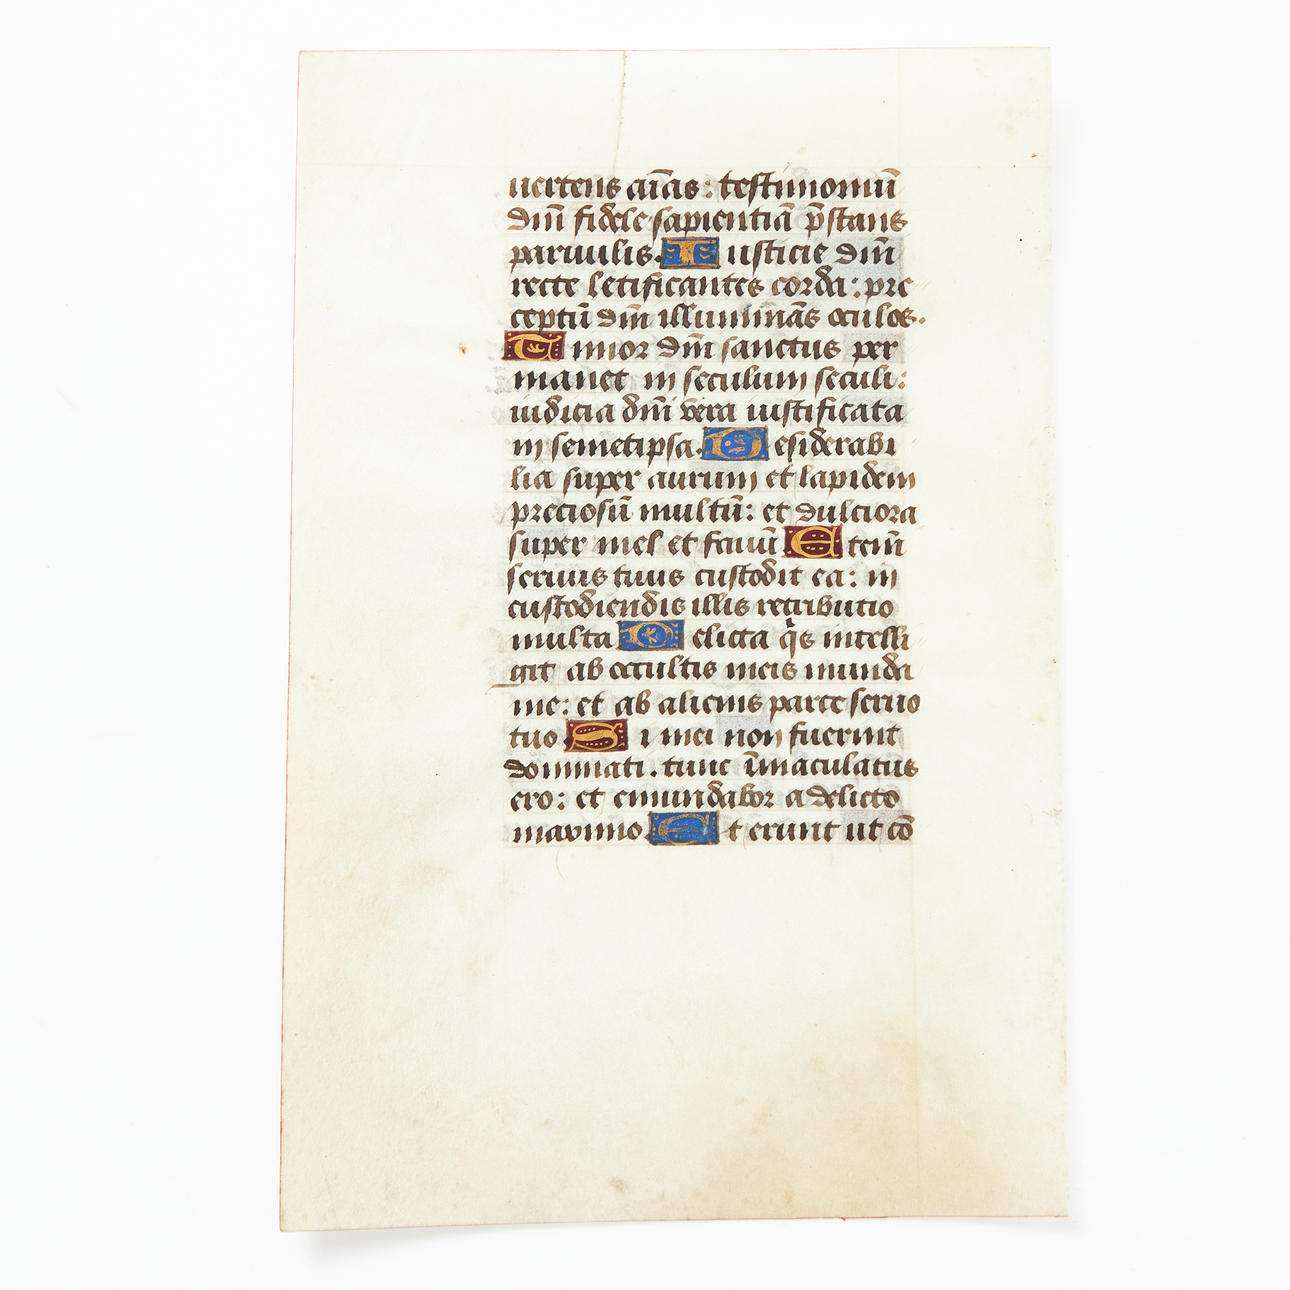 uertens aīas: testimoniū
dm̄i fidele sapientiā p̄stans
paruulis. Iusticie dm̄i
recte letificantes corda: pre
ceptū dm̄i illuminās oculos.
Timor dm̄i sanctus per
manet in seculum seculi:
iudicia dm̄i vera iustificata
in semetipsa. Desiderabi
lia super aurum et lapidem
preciosū multū: et dulciora
super mel et fauū Eteni͂
seruus tuus custodit ea: in
custodiendis illis retributio
multa Delicta q̄s intelli
git ab occultis meis munda
me: et ab alienis parce seruo
tuo Si mei non fuerint
dominati. tunc īmaculatus
ero: et emundabor a delicto
maximo Et erunt ut cō